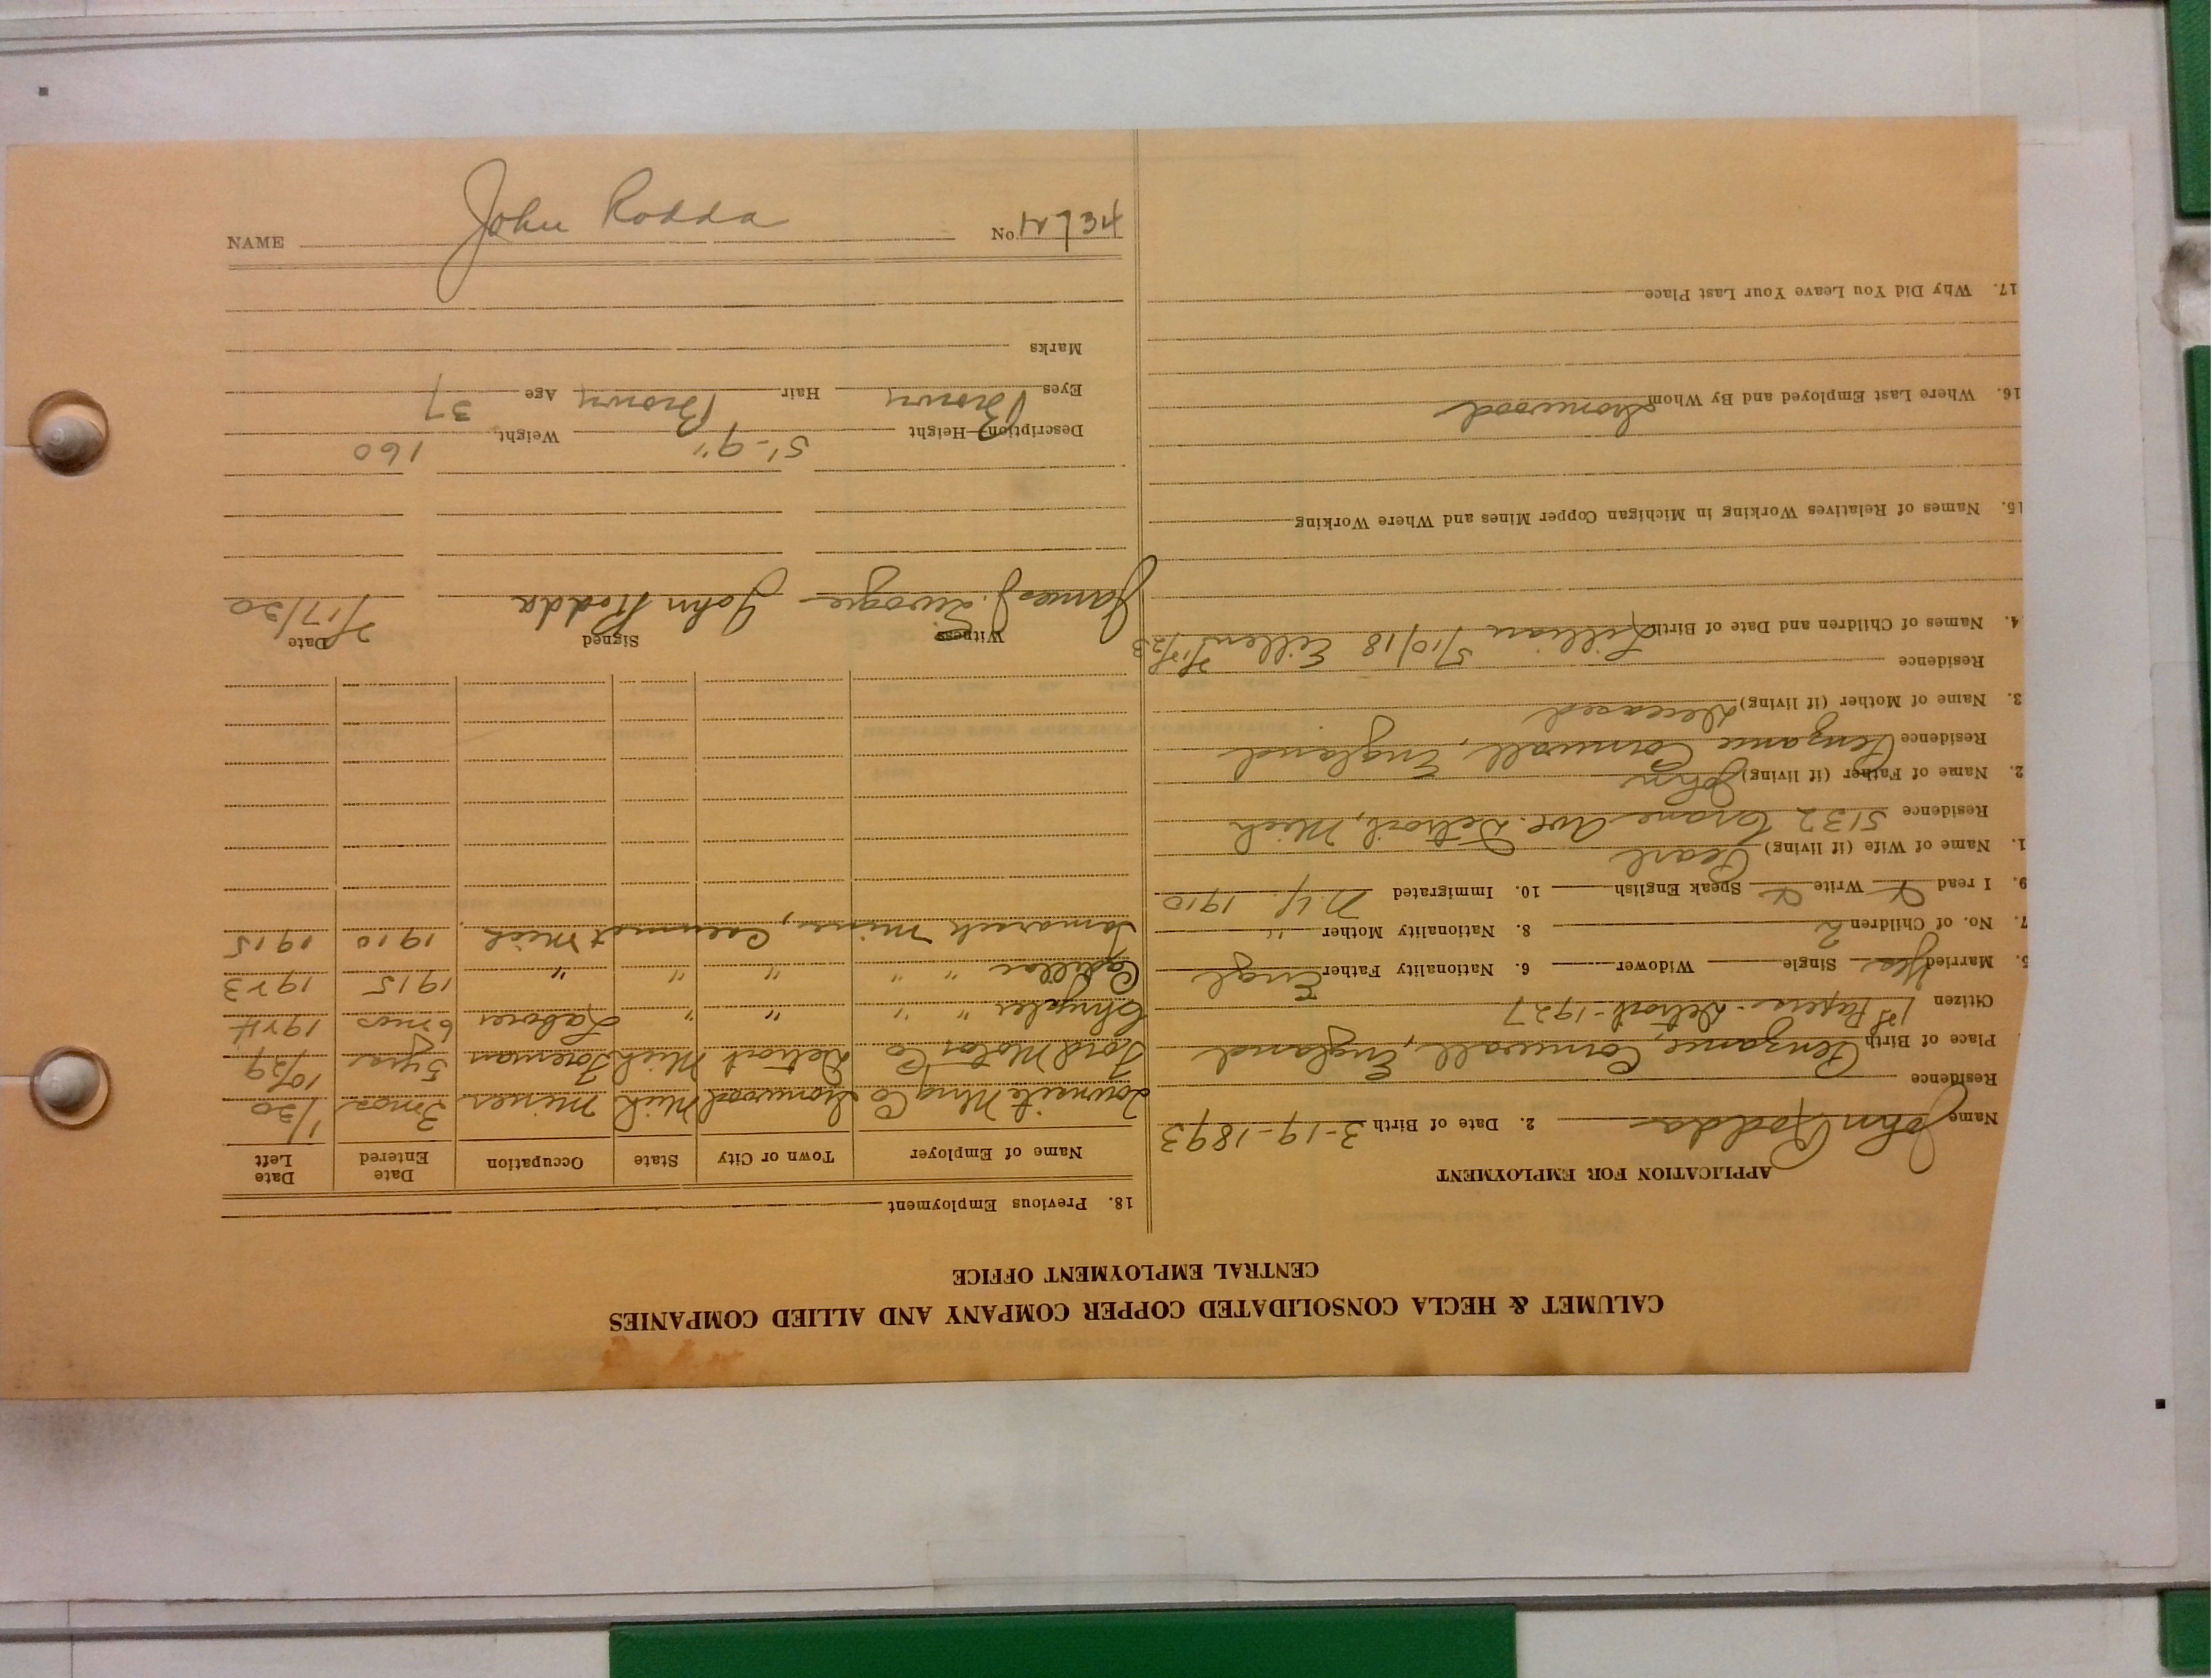 CALUMET & HECLA CONSOLIDATED COPPER COMPANY AND ALLIED COMPANIES
CENTRAL EMPLOYMENT OFFICE
APPLICATION FOR EMPLOYMENT
Name John Rodda 2. Date of Birth 3-19-1893
Residence
Place of Birth Penzance, Cornwall, England
Citizen 1st Papers - Detroit - 1927
5. Married Yes Single Widower 6. Nationality Father Engl
7. No. of Children 2 8. Nationality Mother "
9. I read Write Speak English 10. Immigrated N.Y. 1910
1. Name of Wife (if living) Pearl
Residence 5132 Crane Ave. Detroit, Mich
2. Name of Father (if living) John
Residence Penzance Cornwall, England
3. Name of Mother (if living) Deceased
Residence
4. Names of Children and Date of Birth Lillian 5/10/18 Eillen
15. Names of Relatives Working in Michigan Copper Mines and Where Working
16. Where Last Employed and By Whom Ironwood
17. Why Did You Leave Your Last Place
18. Previous Employment
Name of Employer Town or City State Occupation Date Entered Date Left
Townsite Mng Co Ironwood Mich Miner 3 mos 1/30
Ford Motor Co Detroit Mich Foreman 5 yrs 10/29
Chrysler " " " " Laborer 6 mos 1924
Cadillac " " " " " 1915 1923
Tamarack Mines, Calumet Mich. 1910 1915
Witness Signed Date
James J. John Rodda 7/17/30
Description—Height 5'-9" Weight 160
Eyes Brown Hair Brown Age 37
Marks
NAME John Rodda No. 12734